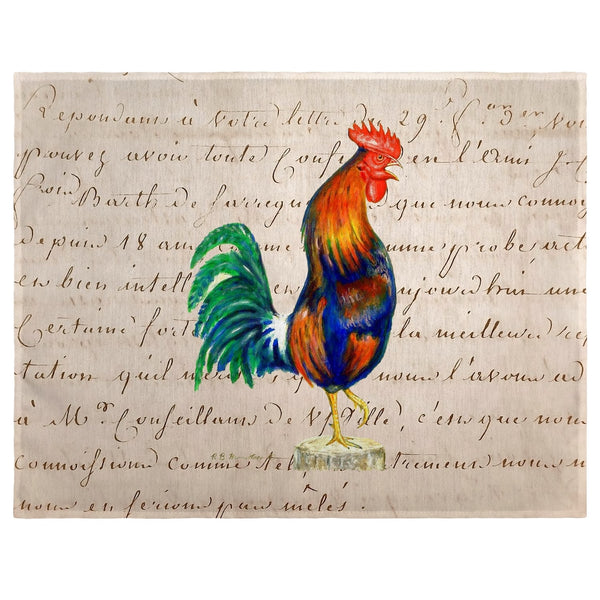 Repondant à Votre lettre du 29
pouvez avoir toute Confi en l'ami J.
Barth de Sarregu que nous connoy
depuis 18 an comme une probe, act
en bien intell aujourd'hui une
Certaine fort la meilleure rép
tation qu'il nous l'avons ad
à Mr. Conseillans de , c'est que nous
connoissions comme tel, tremens nous n
nous en serions pas mêlés.